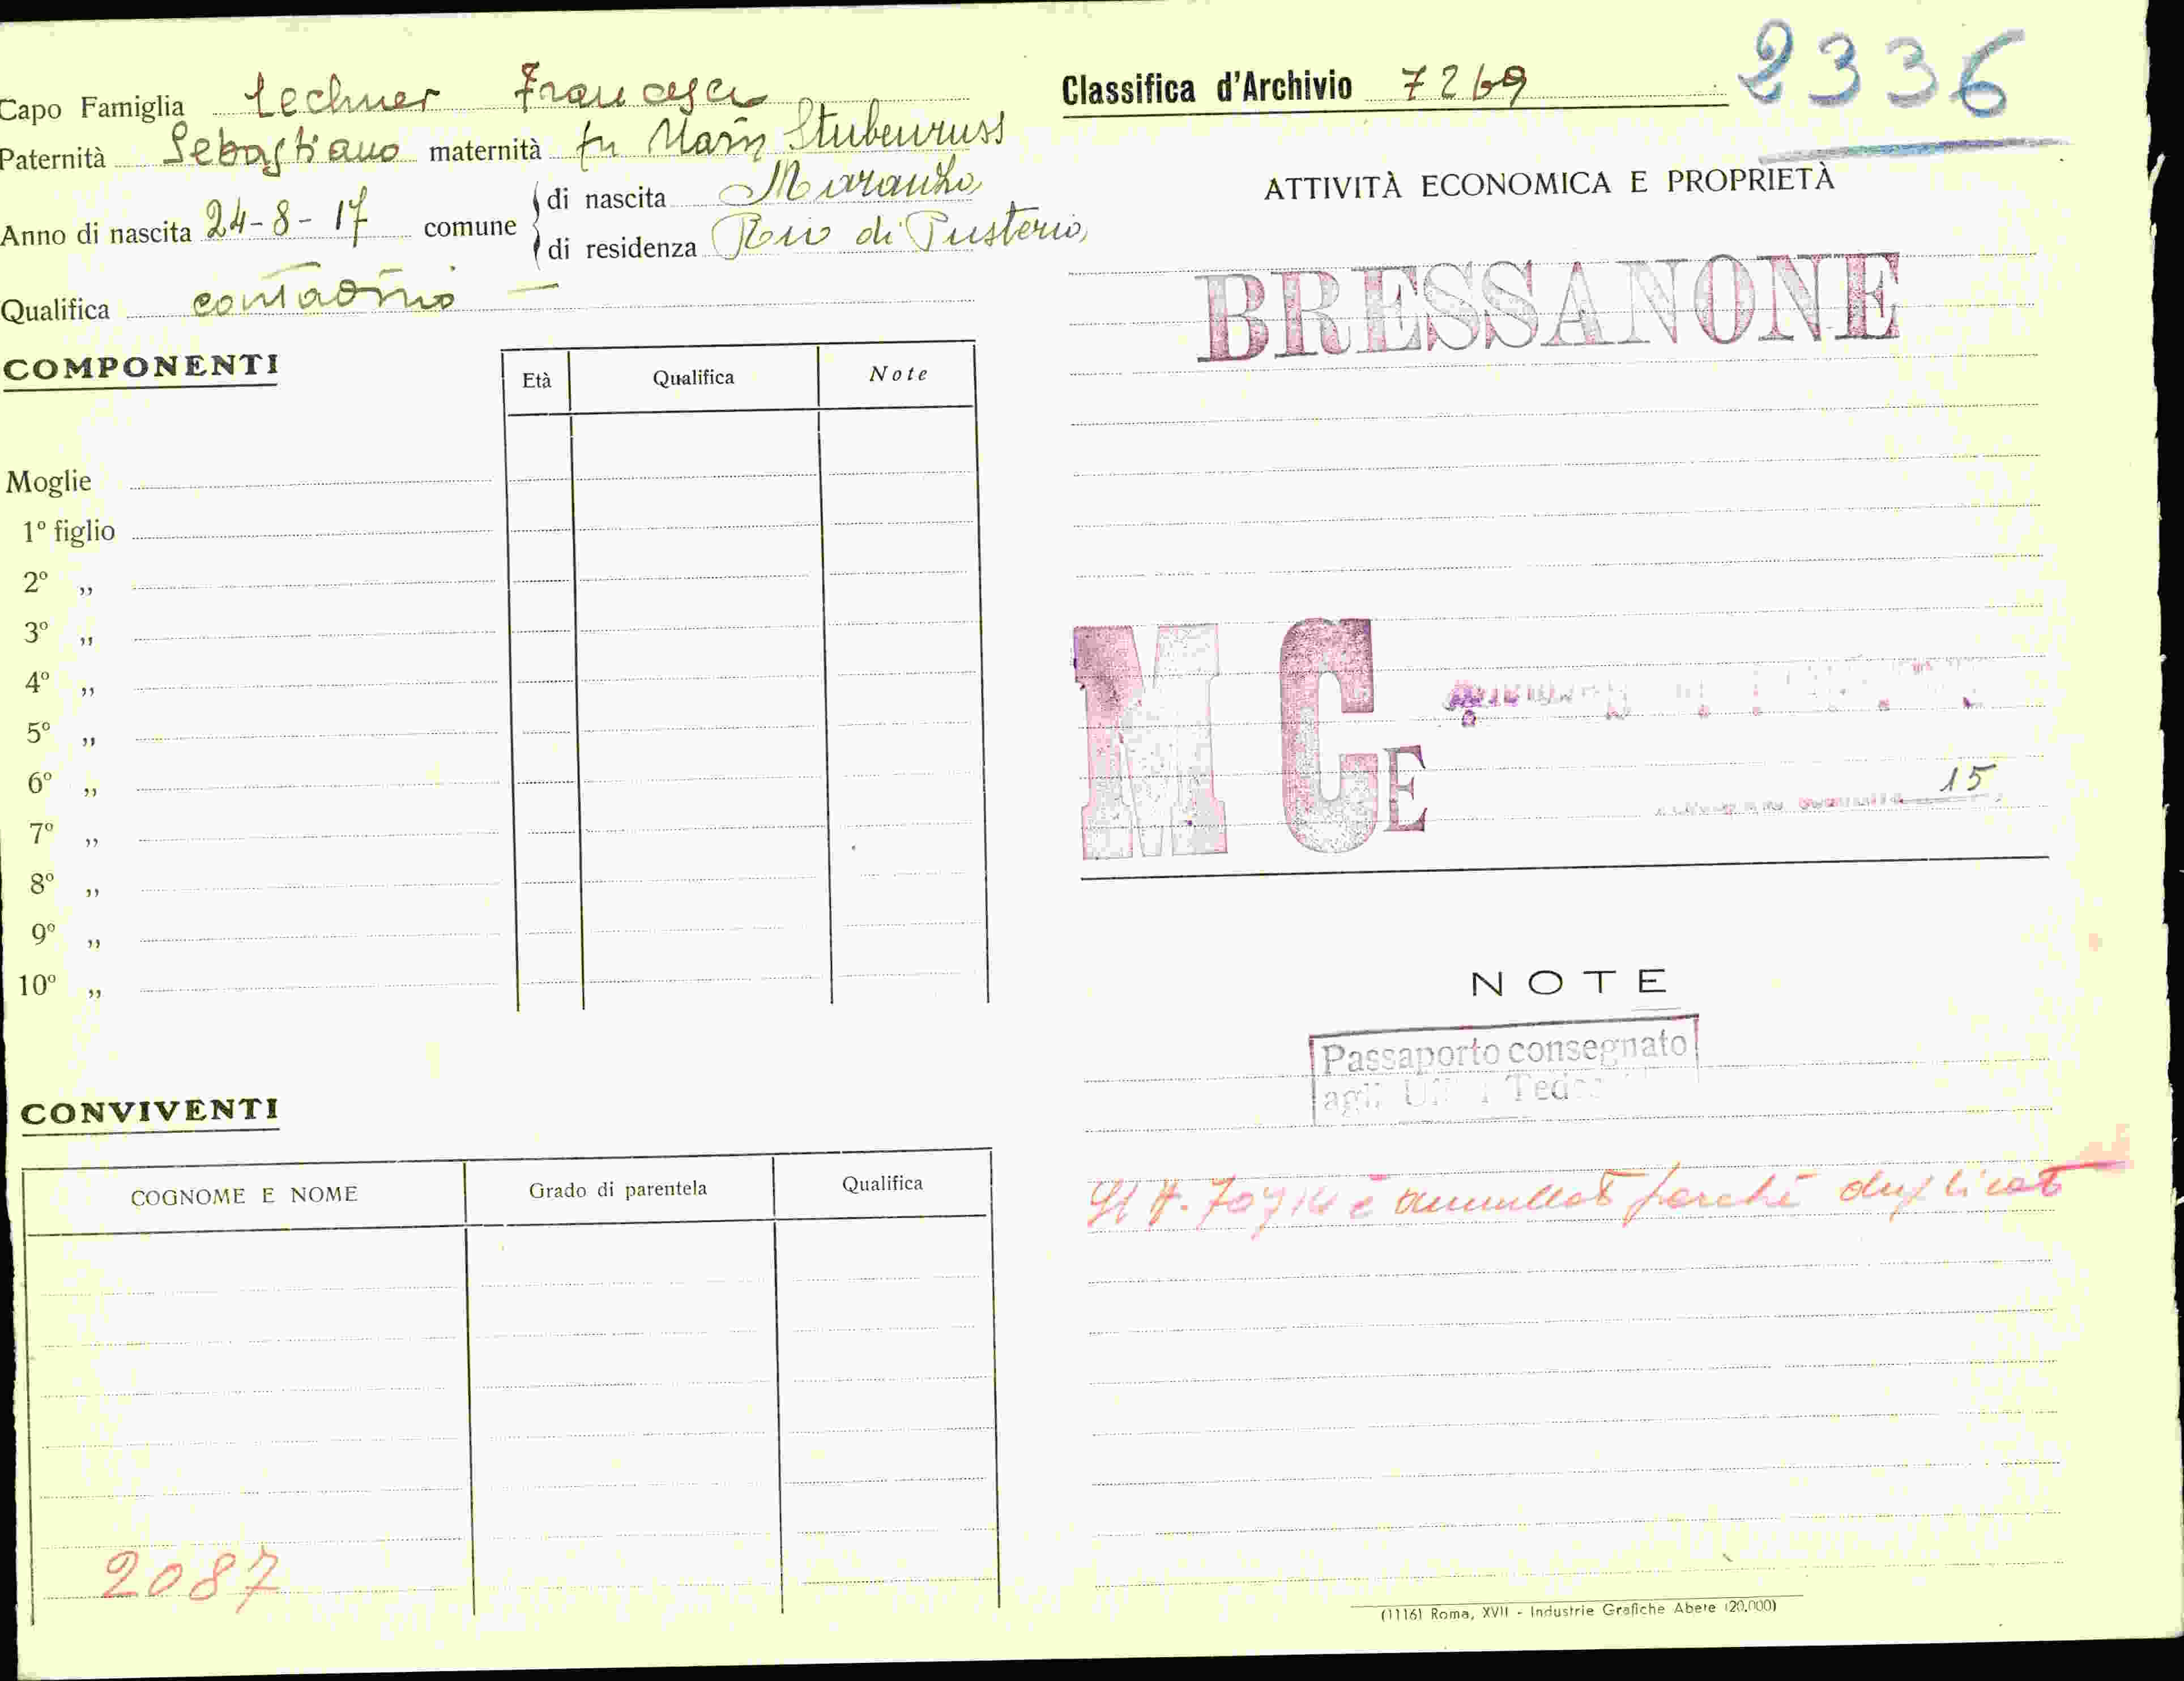 Capo Famiglia Lechner Francesco
Paternità Sebastiano maternità fu Maria Stubenruss
Anno di nascita 24-8-17 comune
di nascita Maranza
di residenza Rio di Pusteria
Qualifica contadino —
COMPONENTI
Età Qualifica Note
Moglie
1° figlio
2° ,,
3° ,,
4° ,,
5° ,,
6° ,,
7° ,,
8° ,,
9° ,,
10° ,,
CONVIVENTI
COGNOME E NOME Grado di parentela Qualifica
2087
Classifica d'Archivio 7269
2336
ATTIVITÀ ECONOMICA E PROPRIETÀ
BRESSANONE
M C E
15
NOTE
Passaporto consegnato
agli Ted
è annullato perchè duplicato
(1116) Roma, XVII - Industrie Grafiche Abete (20.000)